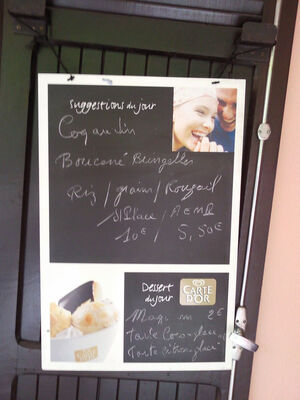 Suggestions du jour
Coq au vin
Boucané Bringelles
Riz / grains / Rougail
S/Place / A EMP
10€ / 5,50€
Dessert
du jour
CARTE
D'OR
2€
Tarte Coco glace
Tarte citron glace
CARTE
D'OR